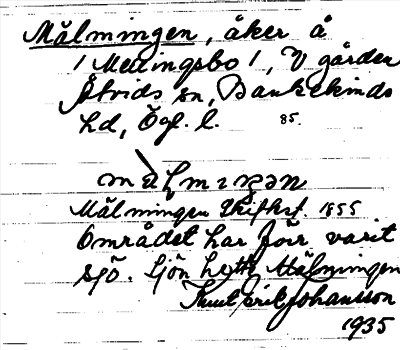 Målmingen, åker å
/ Mellingsbo /, V gården
Åtvids sn, Bankekinds
hd, Ögl. l. 85.
Målmingen Skifteskt. 1855
Området har förr varit
sjö. Sjön hette Målmingen
Knut Erik Johansson
1935